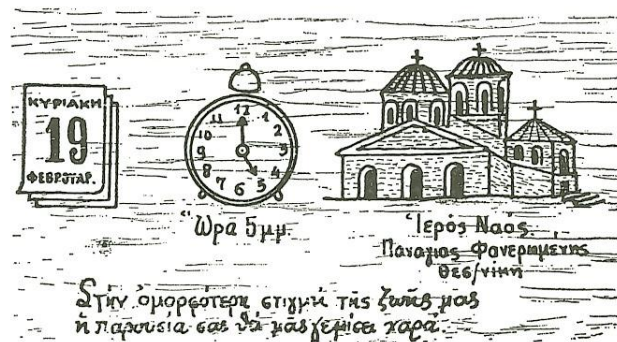 ΚΥΡΙΑΚΗ
19
ΦΕΒΡΟΥΑΡ.
12
1
2
3
4
5
6
7
8
9
10
11
Ὥρα 5 μμ.
Ἱερός Ναός
Παναγίας Φανερωμένης
Θεσ/νίκη
Στήν ὀμορφότερη στιγμή τῆς ζωῆς μας
ἡ παρουσία σας θά μας γεμίσει χαρά.